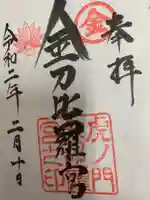 奉拝
金
金刀比羅宮
虎ノ門
令和二年二月十日